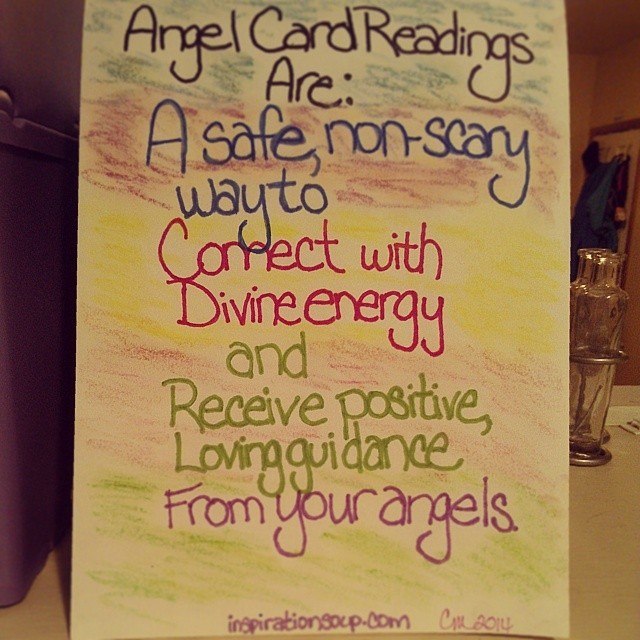 Angel Card Readings
Are:
A safe, non-scary
way to
Connect with
Divine energy
and
Receive positive,
Loving guidance
From your angels.
inspirationsoup.com CM 2014